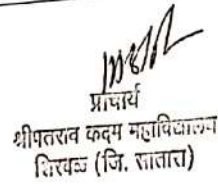 प्राचार्य
श्रीपतराव कदम महाविद्यालय
शिरवळ (जि. सातारा)